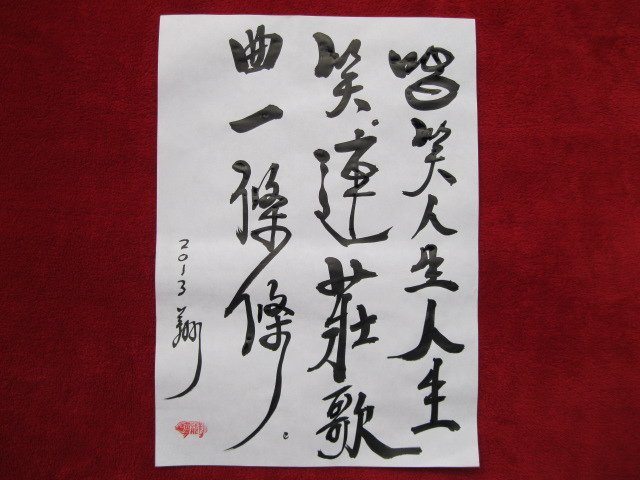 皆笑人生人生
笑連莊歌
曲一條條
2013翔